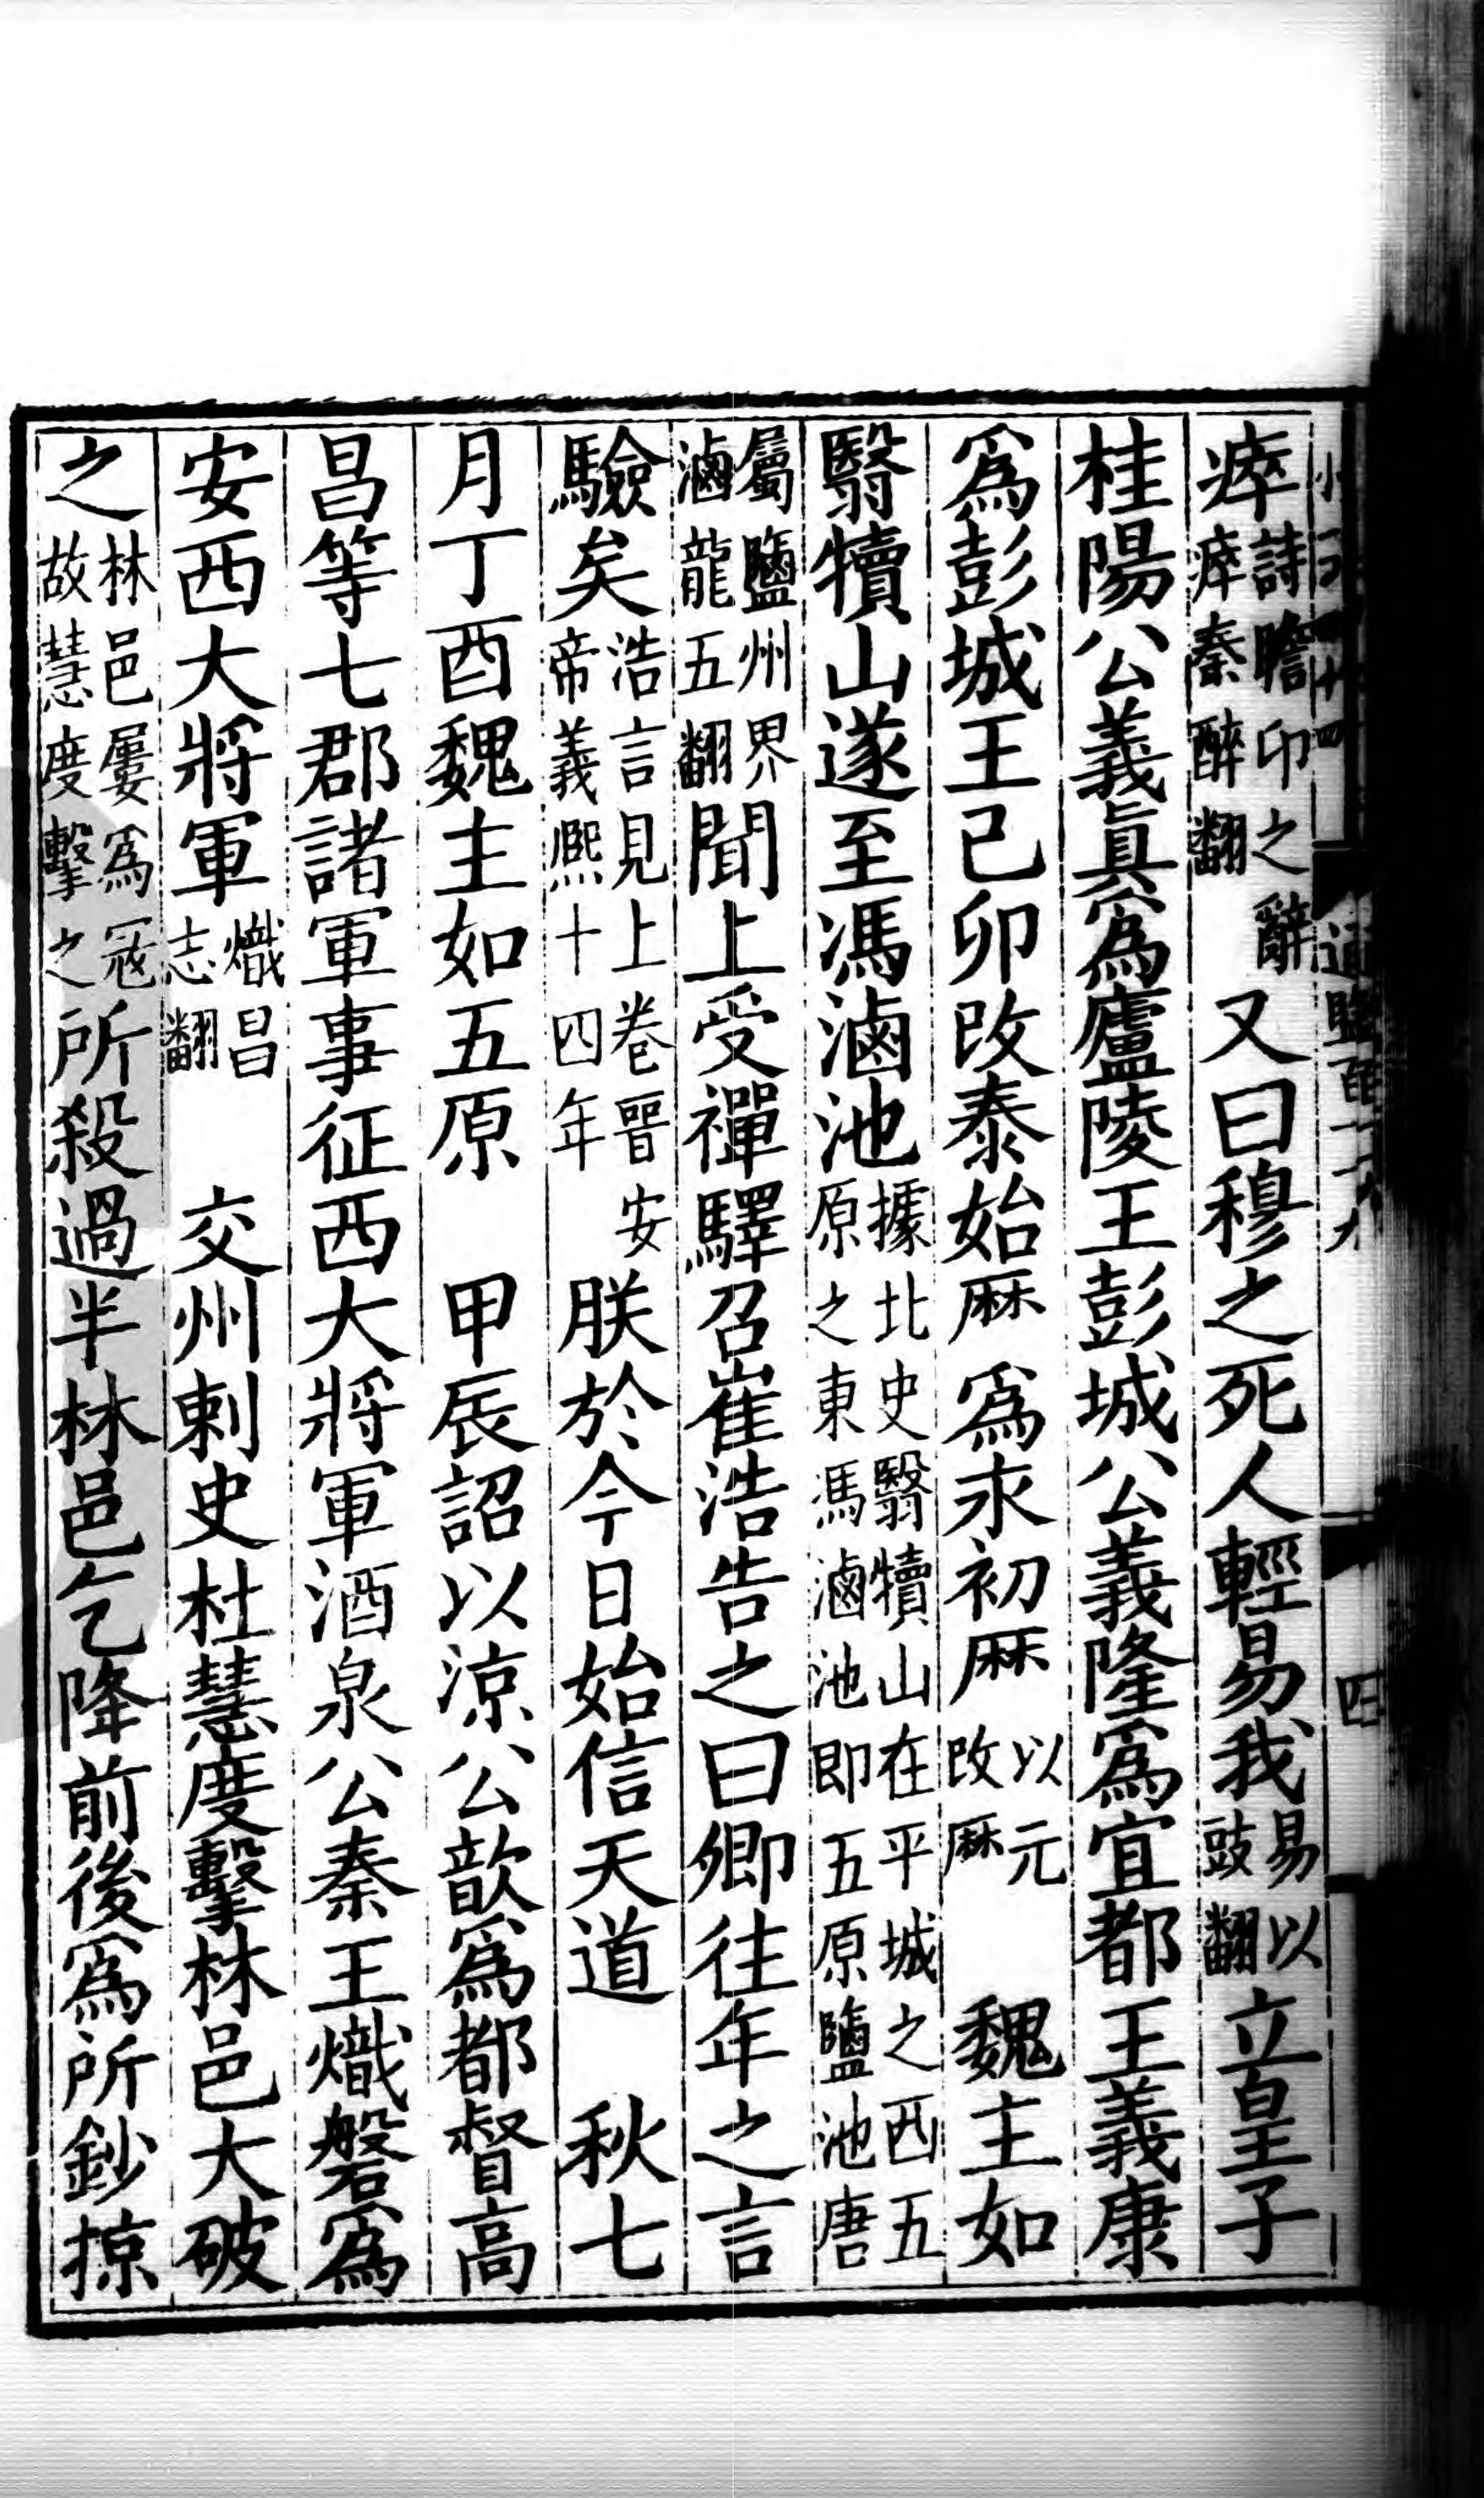 通鑑百十九
四
瘁詩瞻卬之辭瘁秦醉翻又曰穆之死人輕易我易以豉翻立皇子
桂陽公義眞爲廬陵王彭城公義隆爲宜都王義康
爲彭城王己卯改泰始厤爲永初厤以元改厤魏主如
翳犢山遂至馮滷池據北史翳犢山在平城之西五原之東馮滷池即五原鹽池唐
屬鹽州界滷龍五翻聞上受禪驛召崔浩告之曰卿往年之言
驗矣浩言見上卷晉安帝義熙十四年朕於今日始信天道秋七
月丁酉魏主如五原甲辰詔以涼公歆爲都督高
昌等七郡諸軍事征西大將軍酒泉公秦王熾磐爲
安西大將軍熾昌志翻交州刺史杜慧度擊林邑大破
之林邑屢爲寇故慧度擊之所殺過半林邑乞降前後爲所鈔掠